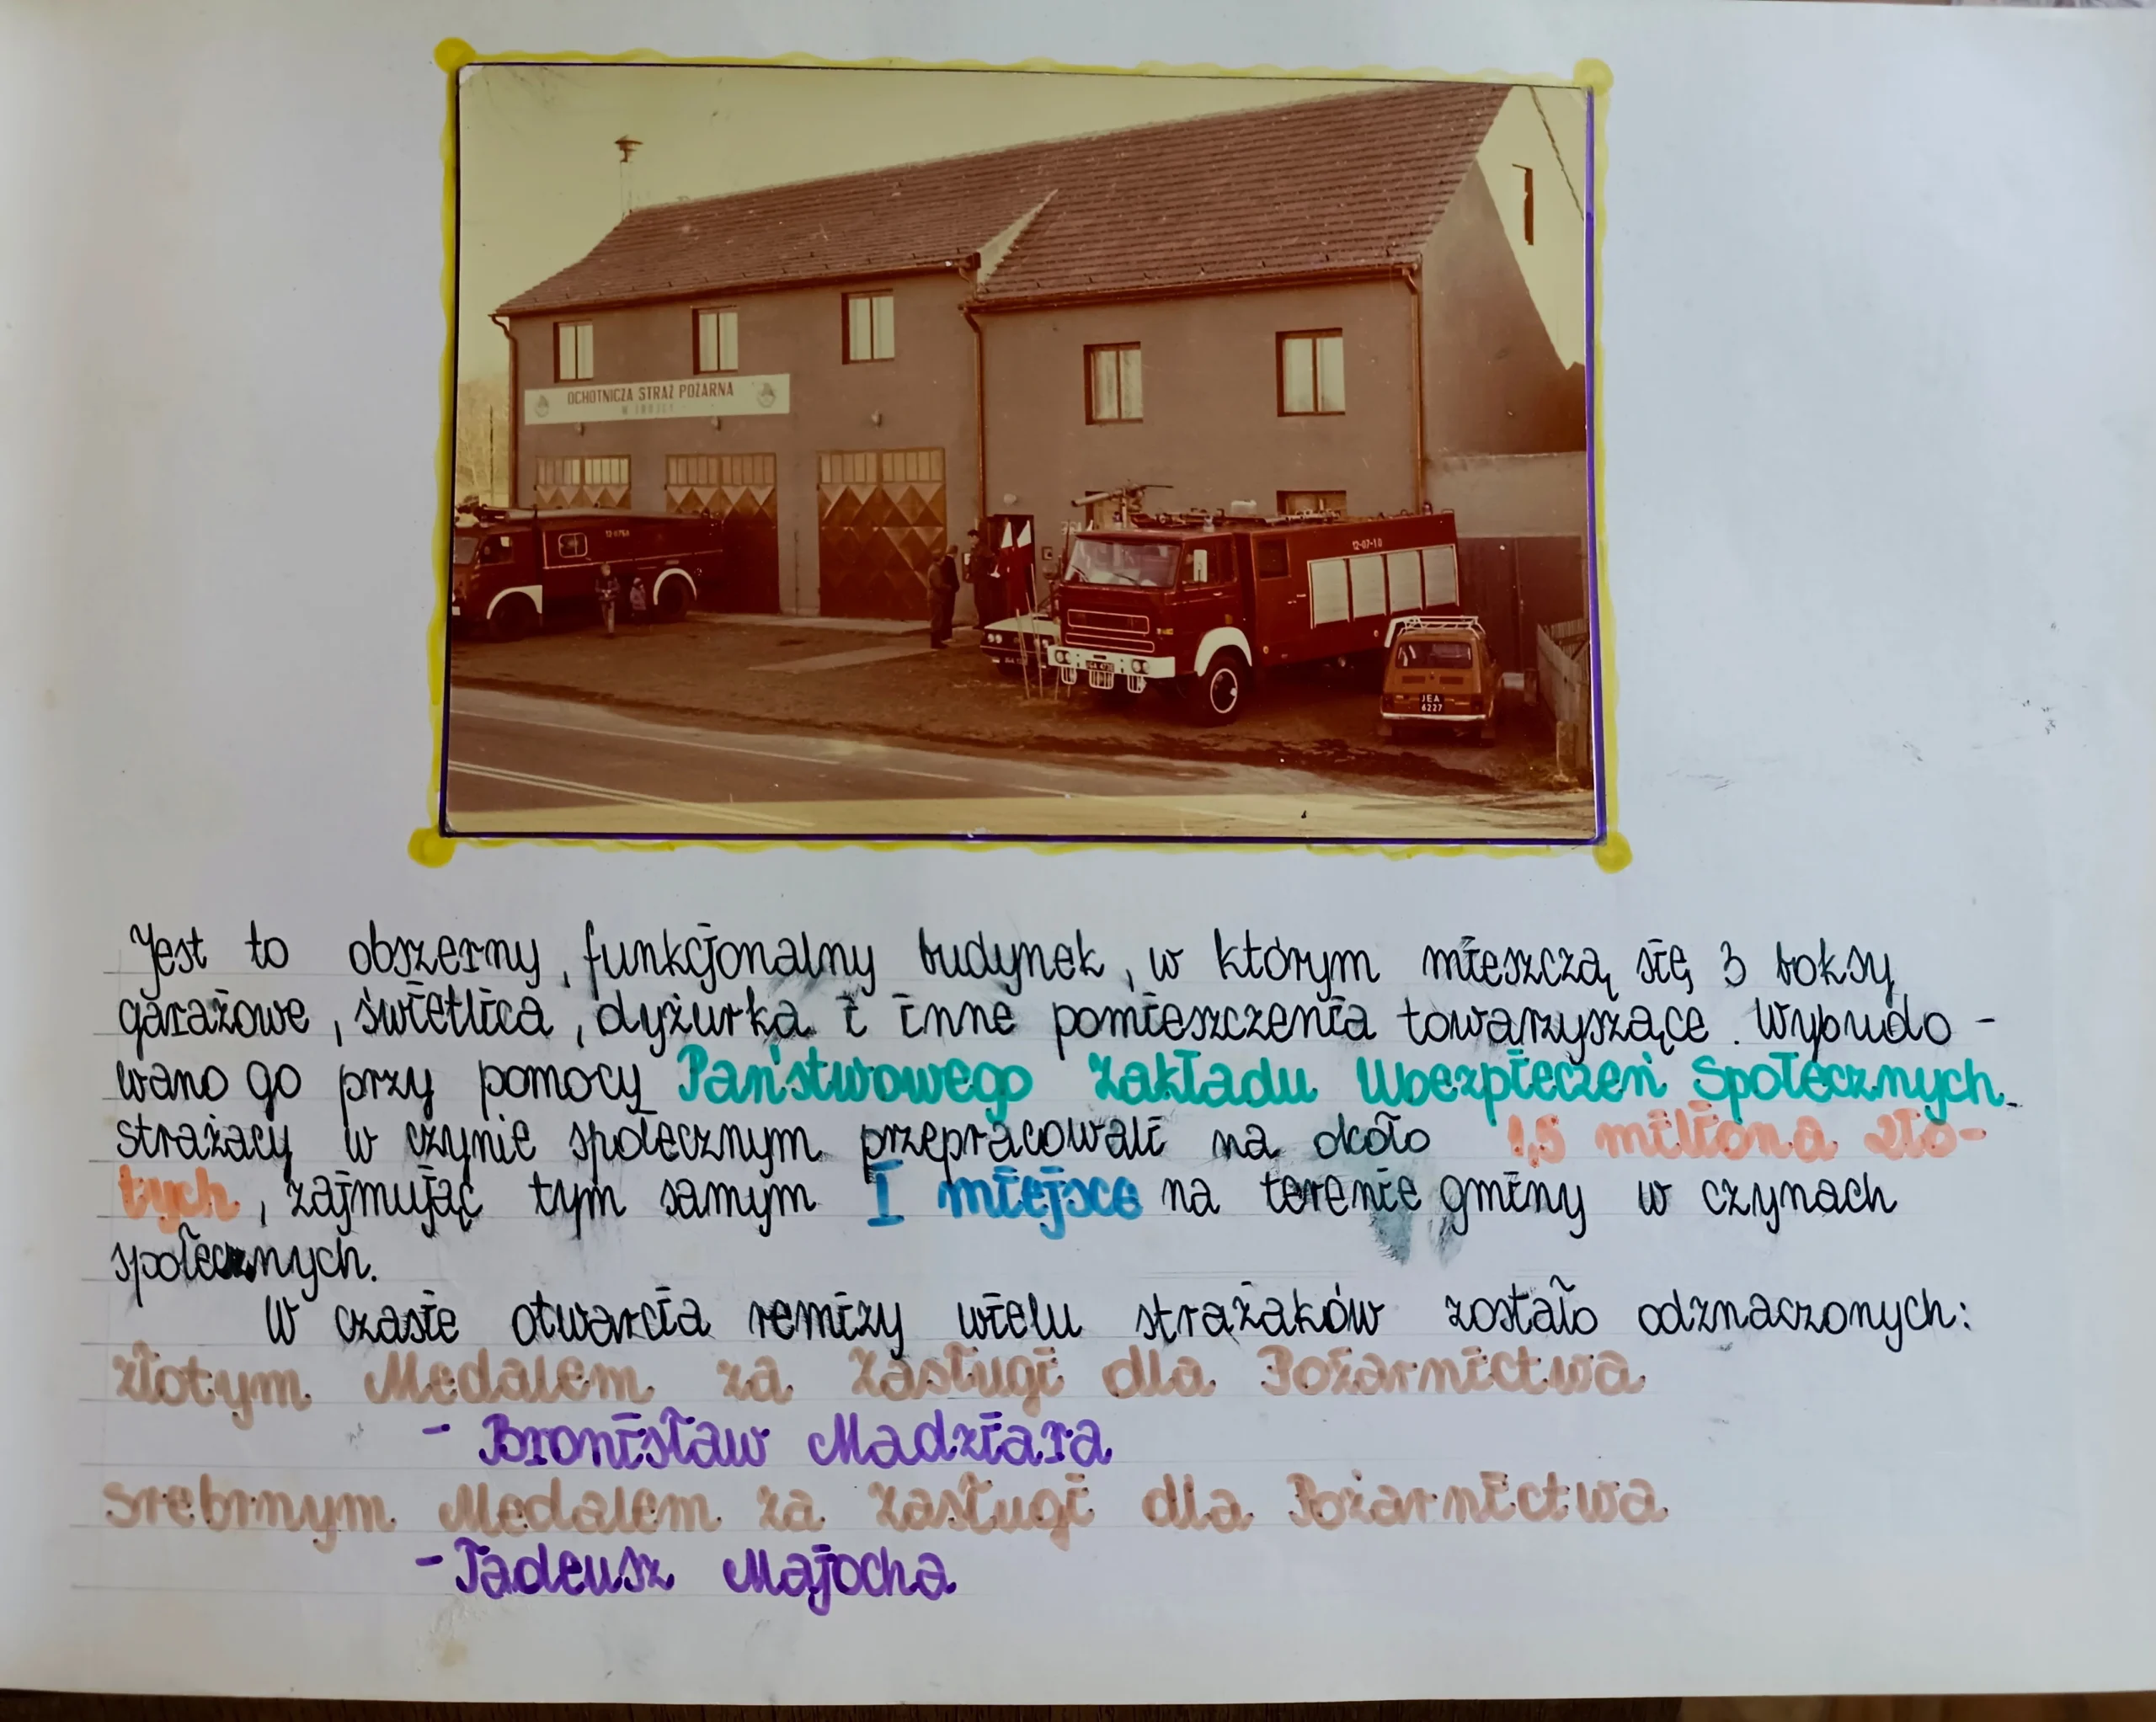 OCHOTNICZA STRAŻ POŻARNA
W
12-07-10
JEA
6227
Jest to obszerny, funkcjonalny budynek, w którym mieszczą się 3 boksy
garażowe, świetlica, dyżurka i inne pomieszczenia towarzyszące. Wybudo-
wano go przy pomocy Państwowego Zakładu Ubezpieczeń Społecznych.
strażacy w czynie społecznym przepracowali na około 1,5 miliona zło-
tych, zajmując tym samym I miejsce na terenie gminy w czynach
społecznych.
W czasie otwarcia remizy wielu strażaków zostało odznaczonych:
złotym Medalem za Zasługi dla Pożarnictwa
- Bronisław Madziara
srebrnym Medalem za Zasługi dla Pożarnictwa
- Tadeusz Majocha